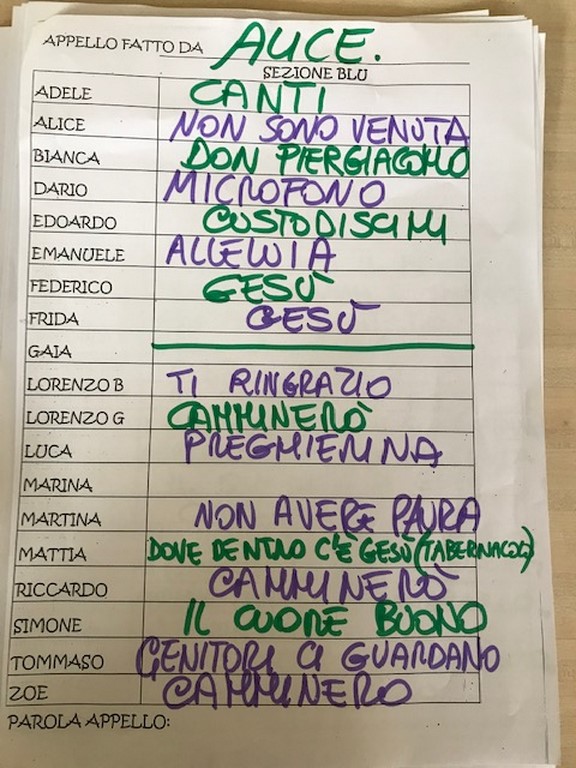 APPELLO FATTO DA ALICE.
SEZIONE BLU
ADELE CANTI
ALICE NON SONO VENUTA
BIANCA DON PIERGIACOMO
DARIO MICROFONO
EDOARDO CUSTODISCIMI
EMANUELE ALLELUIA
FEDERICO GESÙ
FRIDA GESÙ
GAIA
LORENZO B TI RINGRAZIO
LORENZO G CAMMINERÒ
LUCA PREGHIERINA
MARINA
MARTINA NON AVERE PAURA
MATTIA DOVE DENTRO C'È GESÙ (TABERNACOLO)
RICCARDO CAMMINERÒ
SIMONE IL CUORE BUONO
TOMMASO GENITORI CI GUARDANO
ZOE CAMMINERO
PAROLA APPELLO: